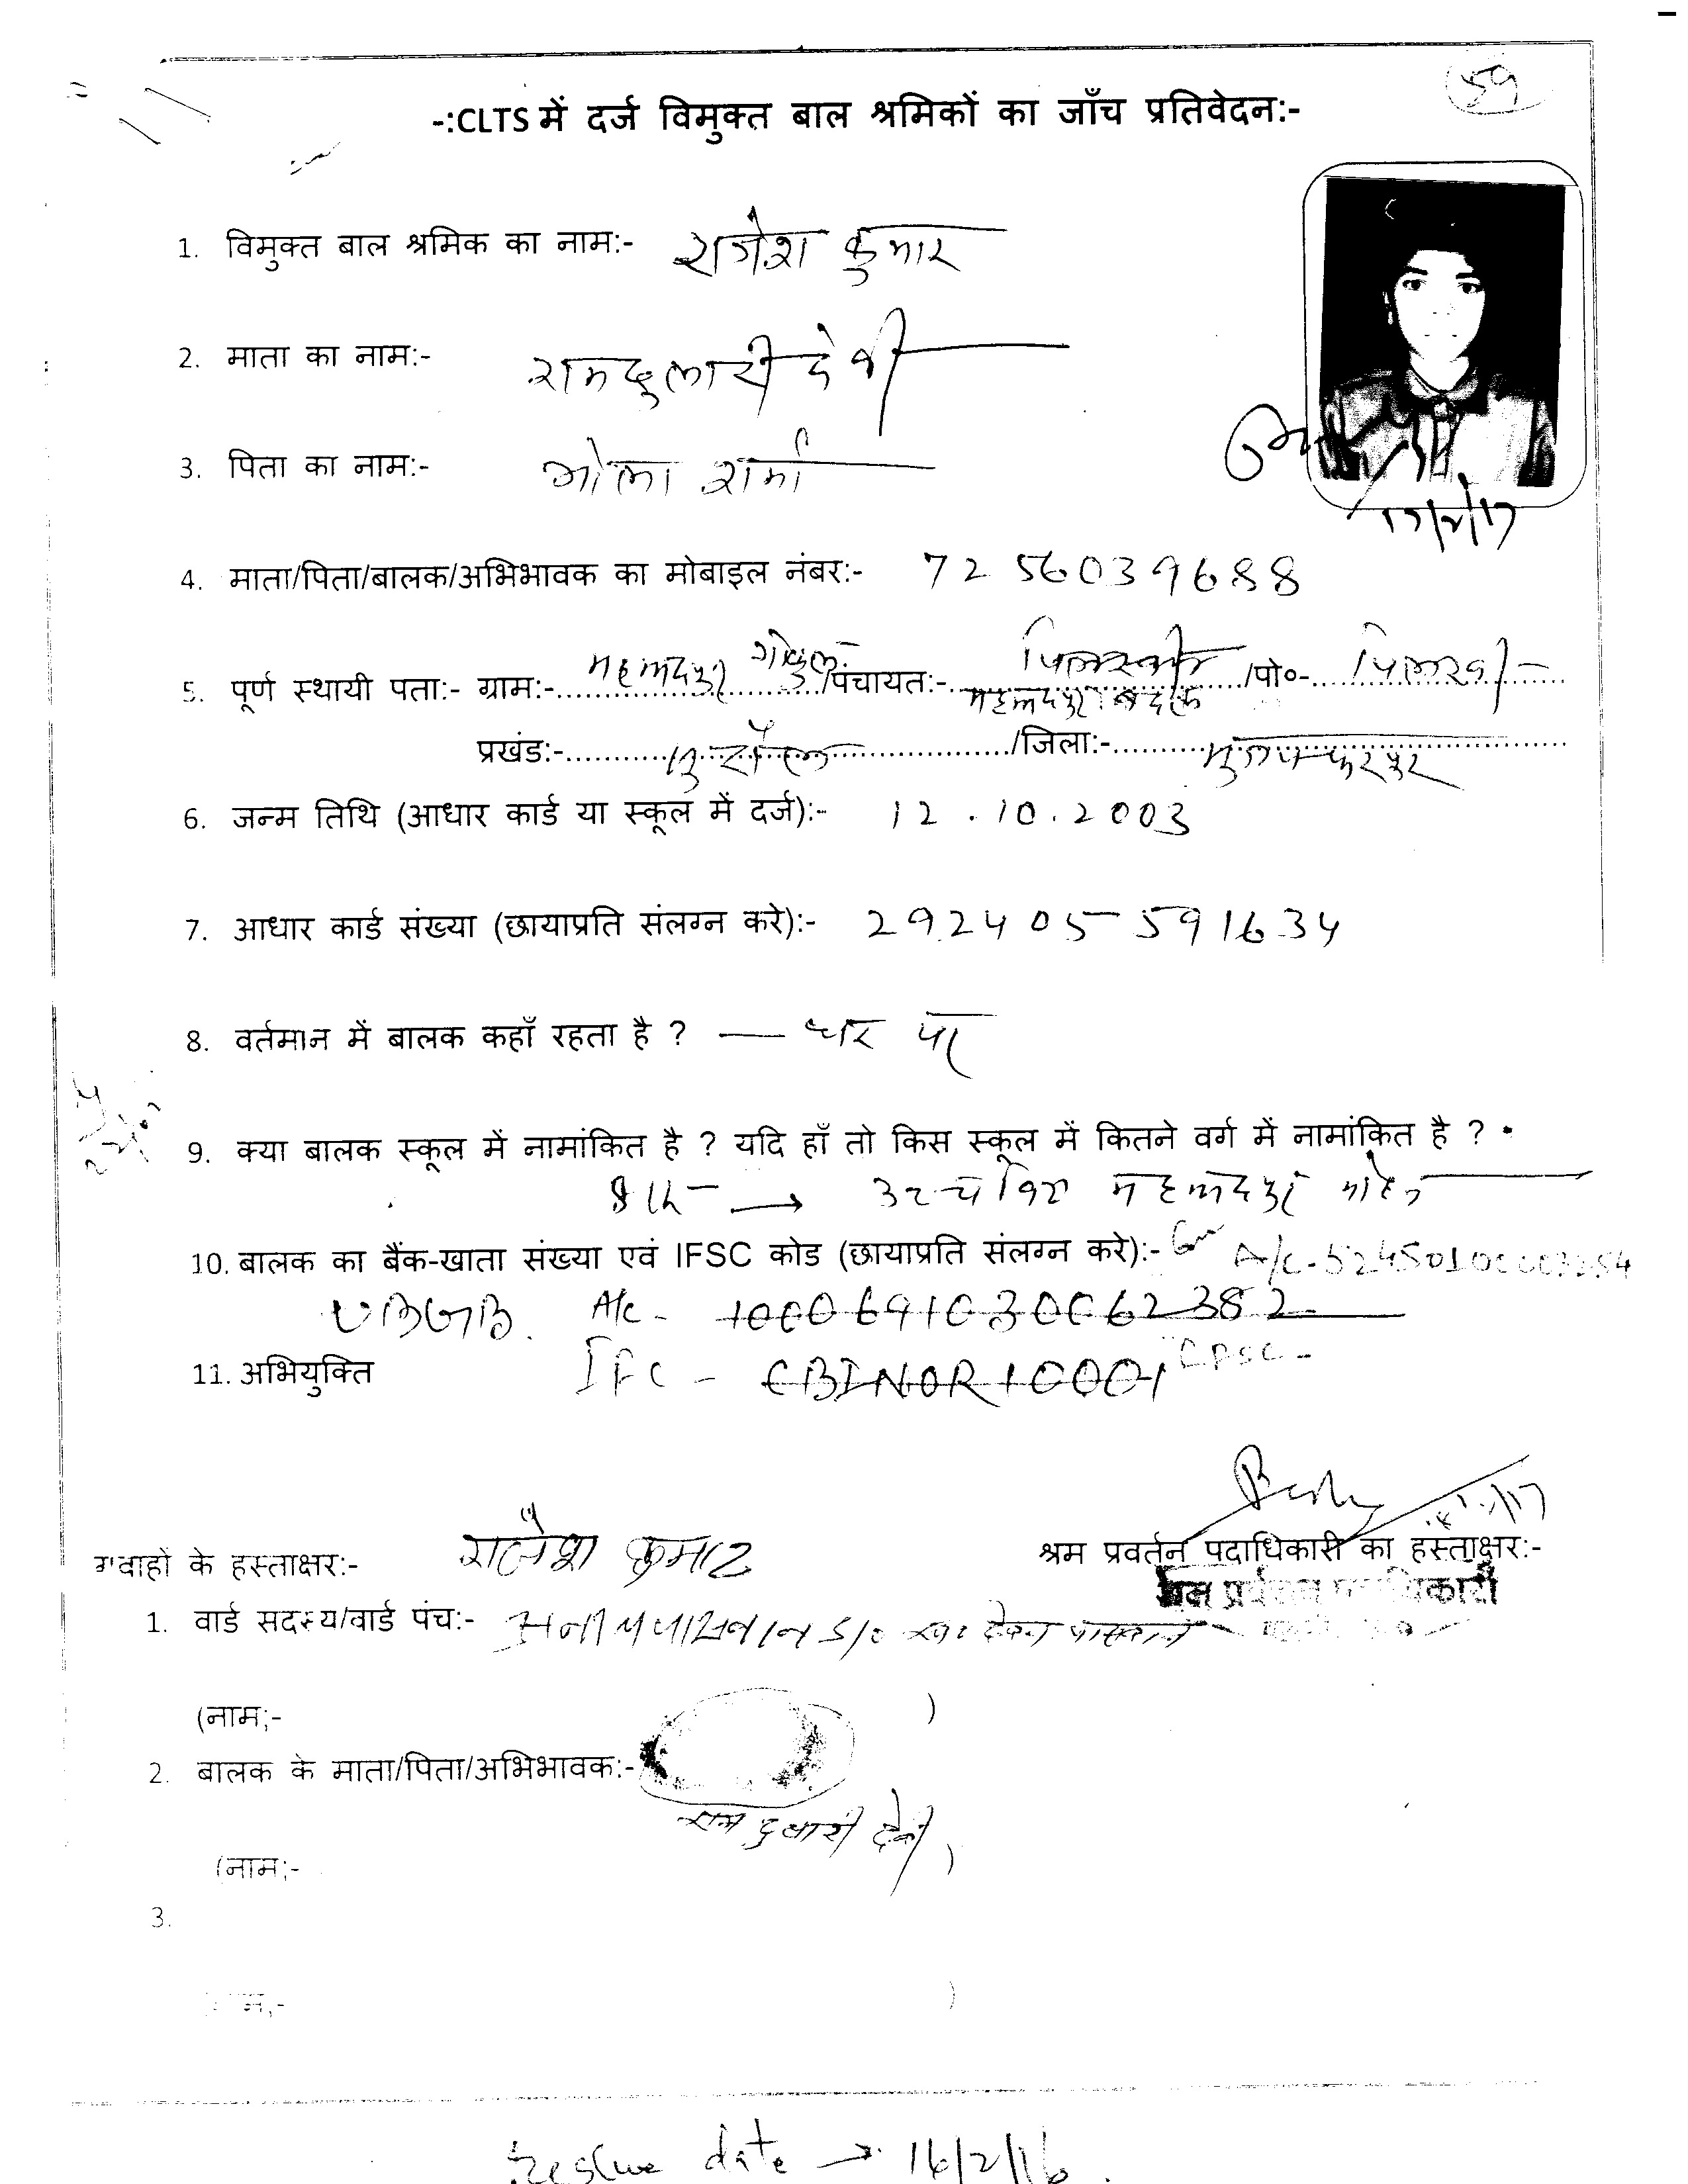 59
-:CLTS में दर्ज विमुक्त बाल श्रमिकों का जाँच प्रतिवेदन:-
1. विमुक्त बाल श्रमिक का नाम:- राजेश कुमार
2. माता का नाम:- रामदुलारी देवी
3. पिता का नाम:- भोला शर्मा
4. माता/पिता/बालक/अभिभावक का मोबाइल नंबर:- 7256039688
5. पूर्ण स्थायी पता:- ग्राम:- महम्मदपुर गोकुल /पंचायत:- महम्मदपुर /पो०-
प्रखंड:- /जिला:- मुजफ्फरपुर
6. जन्म तिथि (आधार कार्ड या स्कूल में दर्ज):- 12.10.2003
7. आधार कार्ड संख्या (छायाप्रति संलग्न करे):- 292405591634
8. वर्तमान में बालक कहाँ रहता है ? — घर पर
9. क्या बालक स्कूल में नामांकित है ? यदि हाँ तो किस स्कूल में कितने वर्ग में नामांकित है ?
8th → महम्मदपुर
10. बालक का बैंक-खाता संख्या एवं IFSC कोड (छायाप्रति संलग्न करे):- A/c-
UBGB. A/c - 1000691030062382
11. अभियुक्ति IFC - CBINOR10001
श्रम प्रवर्तन पदाधिकारी का हस्ताक्षर:-
गवाहों के हस्ताक्षर:- राजेश कुमार
1. वार्ड सदस्य/वार्ड पंच:-
(नाम;- )
2. बालक के माता/पिता/अभिभावक:-
राम दुलारी देवी
(नाम;- )
3.
Rescue date → 16/2/16